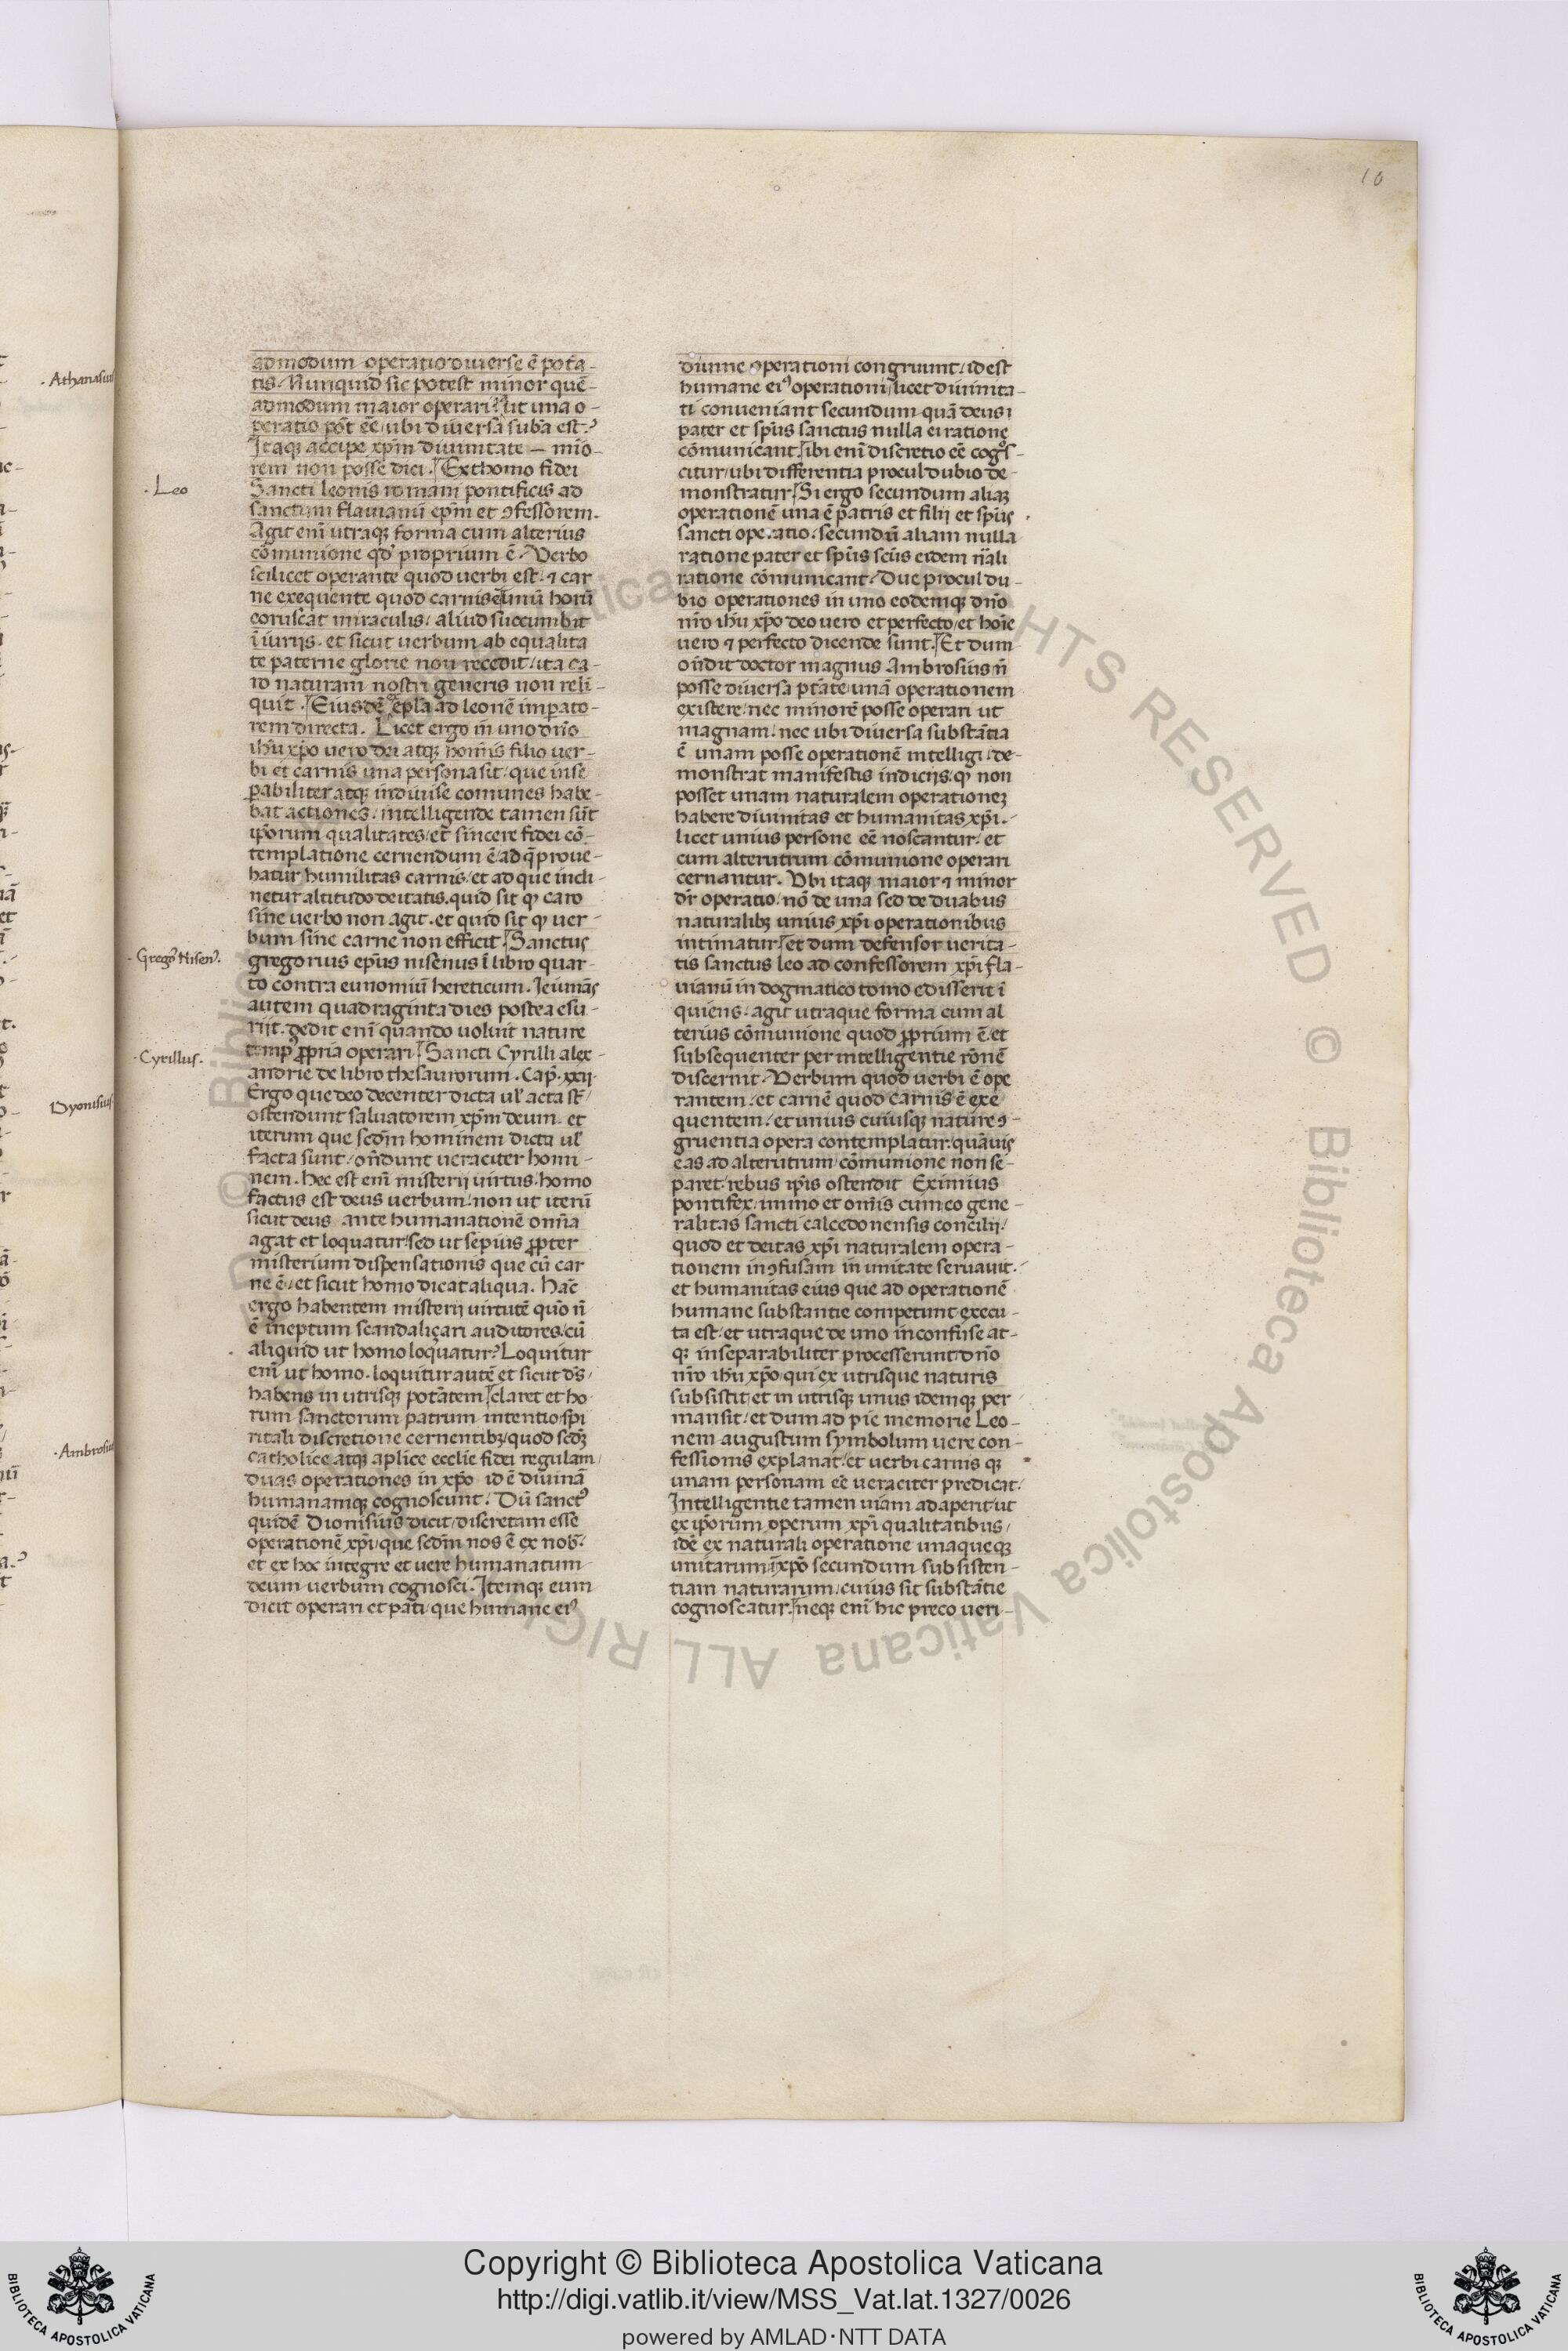 10
admodum operatio diuerse ē potā-
tis. Nunquid sic potest minor quē-
admodum maior operari? ut una o-
peratio pōt eē ubi diuersa suba est?
Itaqꝫ accipe xp̄m diuinitate — mīo-
rem non posse dici. Ex thomo fidei
· Leo
Sancti leonis romani pontificis ad
sanctum flauianū ep̄m et ꝯfessorem.
Agit enī utraqꝫ forma cum alterius
cōmunione qd' proprium ē. Verbo
scilicet operante quod uerbi est. ⁊ car
ne exequente quod carnis ē unū horū
coruscat miraculis / aliud succumbit
īiuriis. et sicut uerbum ab equalita
te paterne glorie non recedit / ita ca-
ro naturam nostri generis non reli-
quit. Eiusdē epl̄a ad leonē imperato-
rem directa. Licet ergo in uno dn̄o
ihū xp̄o uero dei atqꝫ hominis filio uer-
bi et carnis una persona sit / que inse
ꝑabiliter atqꝫ indiuise comunes habe-
bat actiones / intelligende tamen sūt
ip̄orum qualitates / et sincere fidei cō-
templatione cernendum ē / ad q̄ proue-
hatur humilitas carnis / et ad que incli-
netur altitudo deitatis. quid sit ꝙ caro
sine uerbo non agit. et quid sit ꝙ uer-
bum sine carne non efficit. Sanctus
· Grego' Nisen'.
gregorius ep̄us nisenus ī libro quar-
to contra eunomiū hereticum. Ieiunās
autem quadraginta dies postea esu-
riit. dedit enī quando uoluit nature
temp' ꝓpria operari. Sancti Cyrilli alex-
· Cyrillus.
andrie de libro thesaurorum. Cap̄. xxij.
Ergo que deo decenter dicta ul' acta st̄ /
ostendunt saluatorem xp̄m deum. et
iterum que secdm̄ hominem dicta ul'
facta sunt / on̄dunt ueraciter homi-
nem. hec est enī misterii uirtus / homo
factus est deus uerbum / non ut iterū
sicut deus ante humanationē omīa
agat et loquatur / sed ut sepius ꝓpter
misterium dispensationis que cū car
ne ē / et sicut homo dicat aliqua. Hāc
ergo habentem misterii uirtutē quō n̄
ē ineptum scandaliçari auditores / cū
aliquid ut homo loquatur? Loquitur
enī ut homo. loquitur autē et sicut d̄s /
habens in utrisqꝫ potātem claret et ho
rum sanctorum patrum intentio sp̄i
ritali discretione cernentibꝫ / quod secdꝫ
catholice atqꝫ aplice ecclie fidei regulam /
duas operationes in xp̄o id ē diuinā
humanamqꝫ cognoscunt. Dū sanct'
quidē Dionisius dicit / discretam esse
operationē xp̄i / que secdm̄ nos ē ex nob̄.
et ex hoc integre et uere humanatum
deum uerbum cognosci. Itemqꝫ eum
dicit operari et pati / que humane ei'
diuine operationi congruunt / id est
humane ei' operationi / licet diuinita-
ti conueniant secundum quā deus
pater et sp̄us sanctus nulla ei ratione
cōmunicant. ibi enī discretio eē cog°s-
citur / ubi differentia procul dubio de-
monstratur. Si ergo secundum aliaꝫ
operationē una ē patris et filij et sp̄us
sancti operatio. secundū aliam nulla
ratione pater et sp̄us scūs eidem
ratione cōmunicant. Due procul du-
bio operationes in uno eodemqꝫ dn̄o
nr̄o ihū xp̄o deo uero et perfecto / et hoīe
uero ⁊ perfecto dicende sunt. Et dum
on̄dit doctor magnus Ambrosius n̄
posse diuersa ptāte unā operationem
existere / nec minorē posse operari ut
magnam. nec ubi diuersa substātia
ē unam posse operationē intelligi / de-
monstrat manifestis indiciis. ꝙ non
posset unam naturalem operationeꝫ
habere diuinitas et humanitas xp̄i.
licet unius persone eē noscantur. et
cum alterutrum cōmunione operari
cernantur. Vbi itaqꝫ maior ⁊ minor
dr̄ operatio / nō de una sed de duabus
naturalibꝫ unius xp̄i operationibus
intimatur / et dum defensor uerita-
tis sanctus leo ad confessorem xp̄i fla-
uianū in dogmatico tomo edisserit ī
quiens. agit utraque forma cum al
terius cōmunione quod ꝓprium ē. et
subsequenter per intelligentie rōnē
discernit. Verbum quod uerbi ē ope
rantem. et carnē quod carnis ē exe
quentem. et unius cuiusqꝫ nature ꝯ-
gruentia opera contemplatur. quāuis
eas ad alterutrum / cōmunione non se-
paret / rebus ip̄is ostendit Eximius
pontifex / immo et omīs cum eo gene
ralitas sancti calcedonensis concilij.
quod et deitas xp̄i naturalem opera-
tionem inꝯfusam in unitate seruauit.
et humanitas eius que ad operationē
humane substantie competunt execu-
ta est / et utraque de uno inconfuse at-
qꝫ inseparabiliter processerunt dn̄o
nr̄o ihū xp̄o / qui ex utrisque naturis
subsistit / et in utrisqꝫ unus idemqꝫ per
mansit / et dum ad pie memorie Leo-
nem augustum symbolum uere con-
fessionis explanat / et uerbi carnis qꝫ
unam personam eē ueraciter predicat.
Intelligentie tamen uiam adaperit ut
ex ip̄orum operum xp̄i qualitatibus /
idē ex naturali operatione unaqueqꝫ
unitarum ī xp̄o secundum subsisten-
tiam naturarum / cuius sit substātie
cognoscatur. neqꝫ enī hic preco ueri-
· Athanasius
Dyonisius
· Ambrosius
Copyright © Biblioteca Apostolica Vaticana
http://digi.vatlib.it/view/MSS_Vat.lat.1327/0026
powered by AMLAD·NTT DATA
BIBLIOTECA APOSTOLICA VATICANA
BIBLIOTECA APOSTOLICA VATICANA
© Biblioteca Apostolica Vaticana ALL RIGHTS RESERVED © Biblioteca Apostolica Vaticana ALL RIGHTS RESERVED